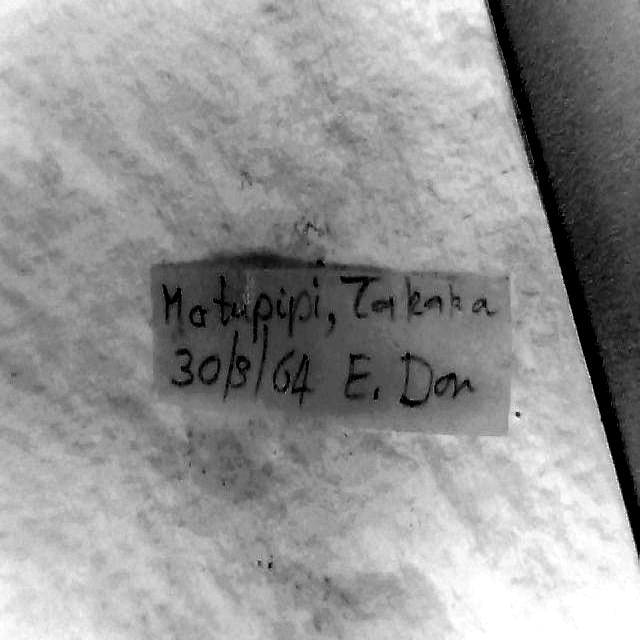 Motupipi, Takaka
30/8/64 E. Don